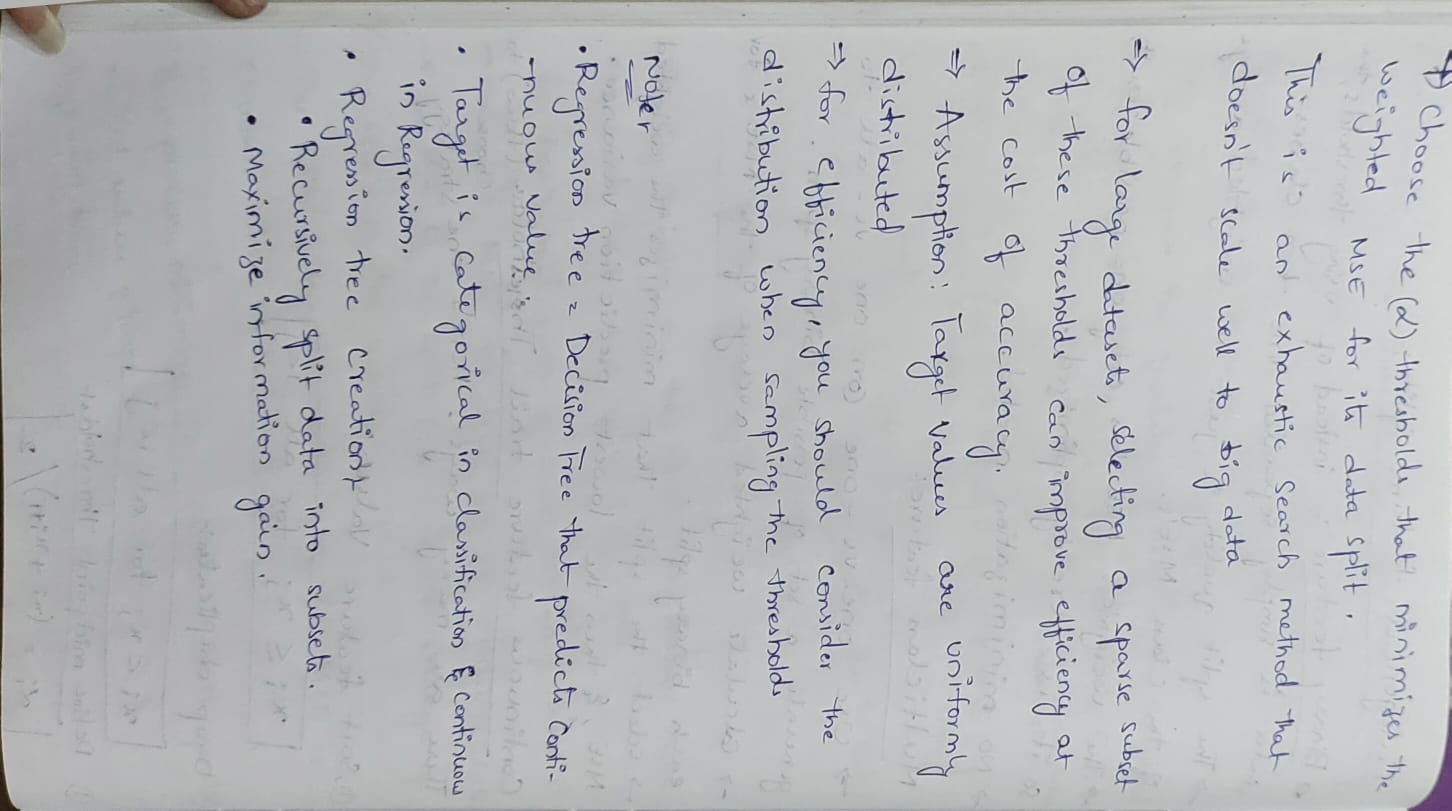 Choose the (α) thresholds that minimizes the
weighted MSE for its data split.
This is an exhaustic search method that
doesn't scale well to big data
⇒ for large datasets, selecting a sparse subset
of these thresholds can improve efficiency at
the cost of accuracy.
⇒ Assumption: Target values are uniformly
distributed
⇒ for efficiency, you should consider the
distribution when sampling the thresholds
Note:
• Regression tree = Decision Tree that predicts Conti-
-nuous value.
• Target is categorical in classification & continuous
in Regression.
• Regression tree creation:
• Recursively split data into subsets.
• Maximize information gain.